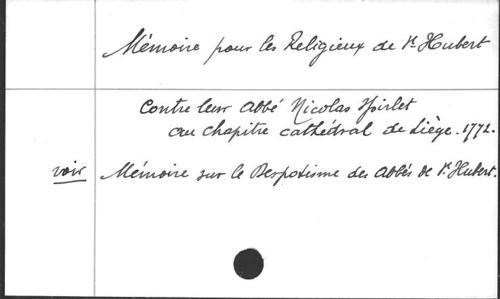 Mémoire pour les Religieux de St Hubert
Contre leur Abbé Nicolas Spirlet
au chapitre cathédral de Liège. 1772.
voir Mémoire sur le Despotisme des Abbés de St. Hubert.